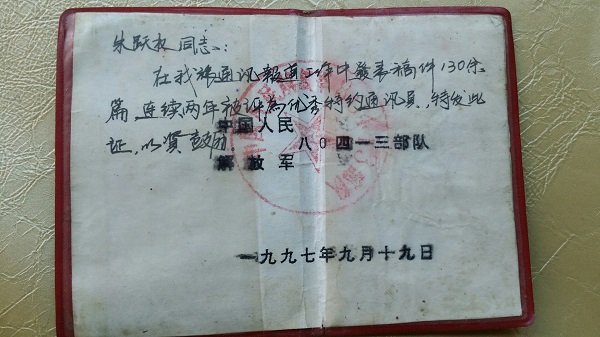 朱跃权同志:
在我旅通讯报道工作中發表稿件130余
篇,连续两年被评为优秀特约通讯员,特发此
证,以资鼓励.
中国人民
八〇四一三部队
解放军
一九九七年九月十九日